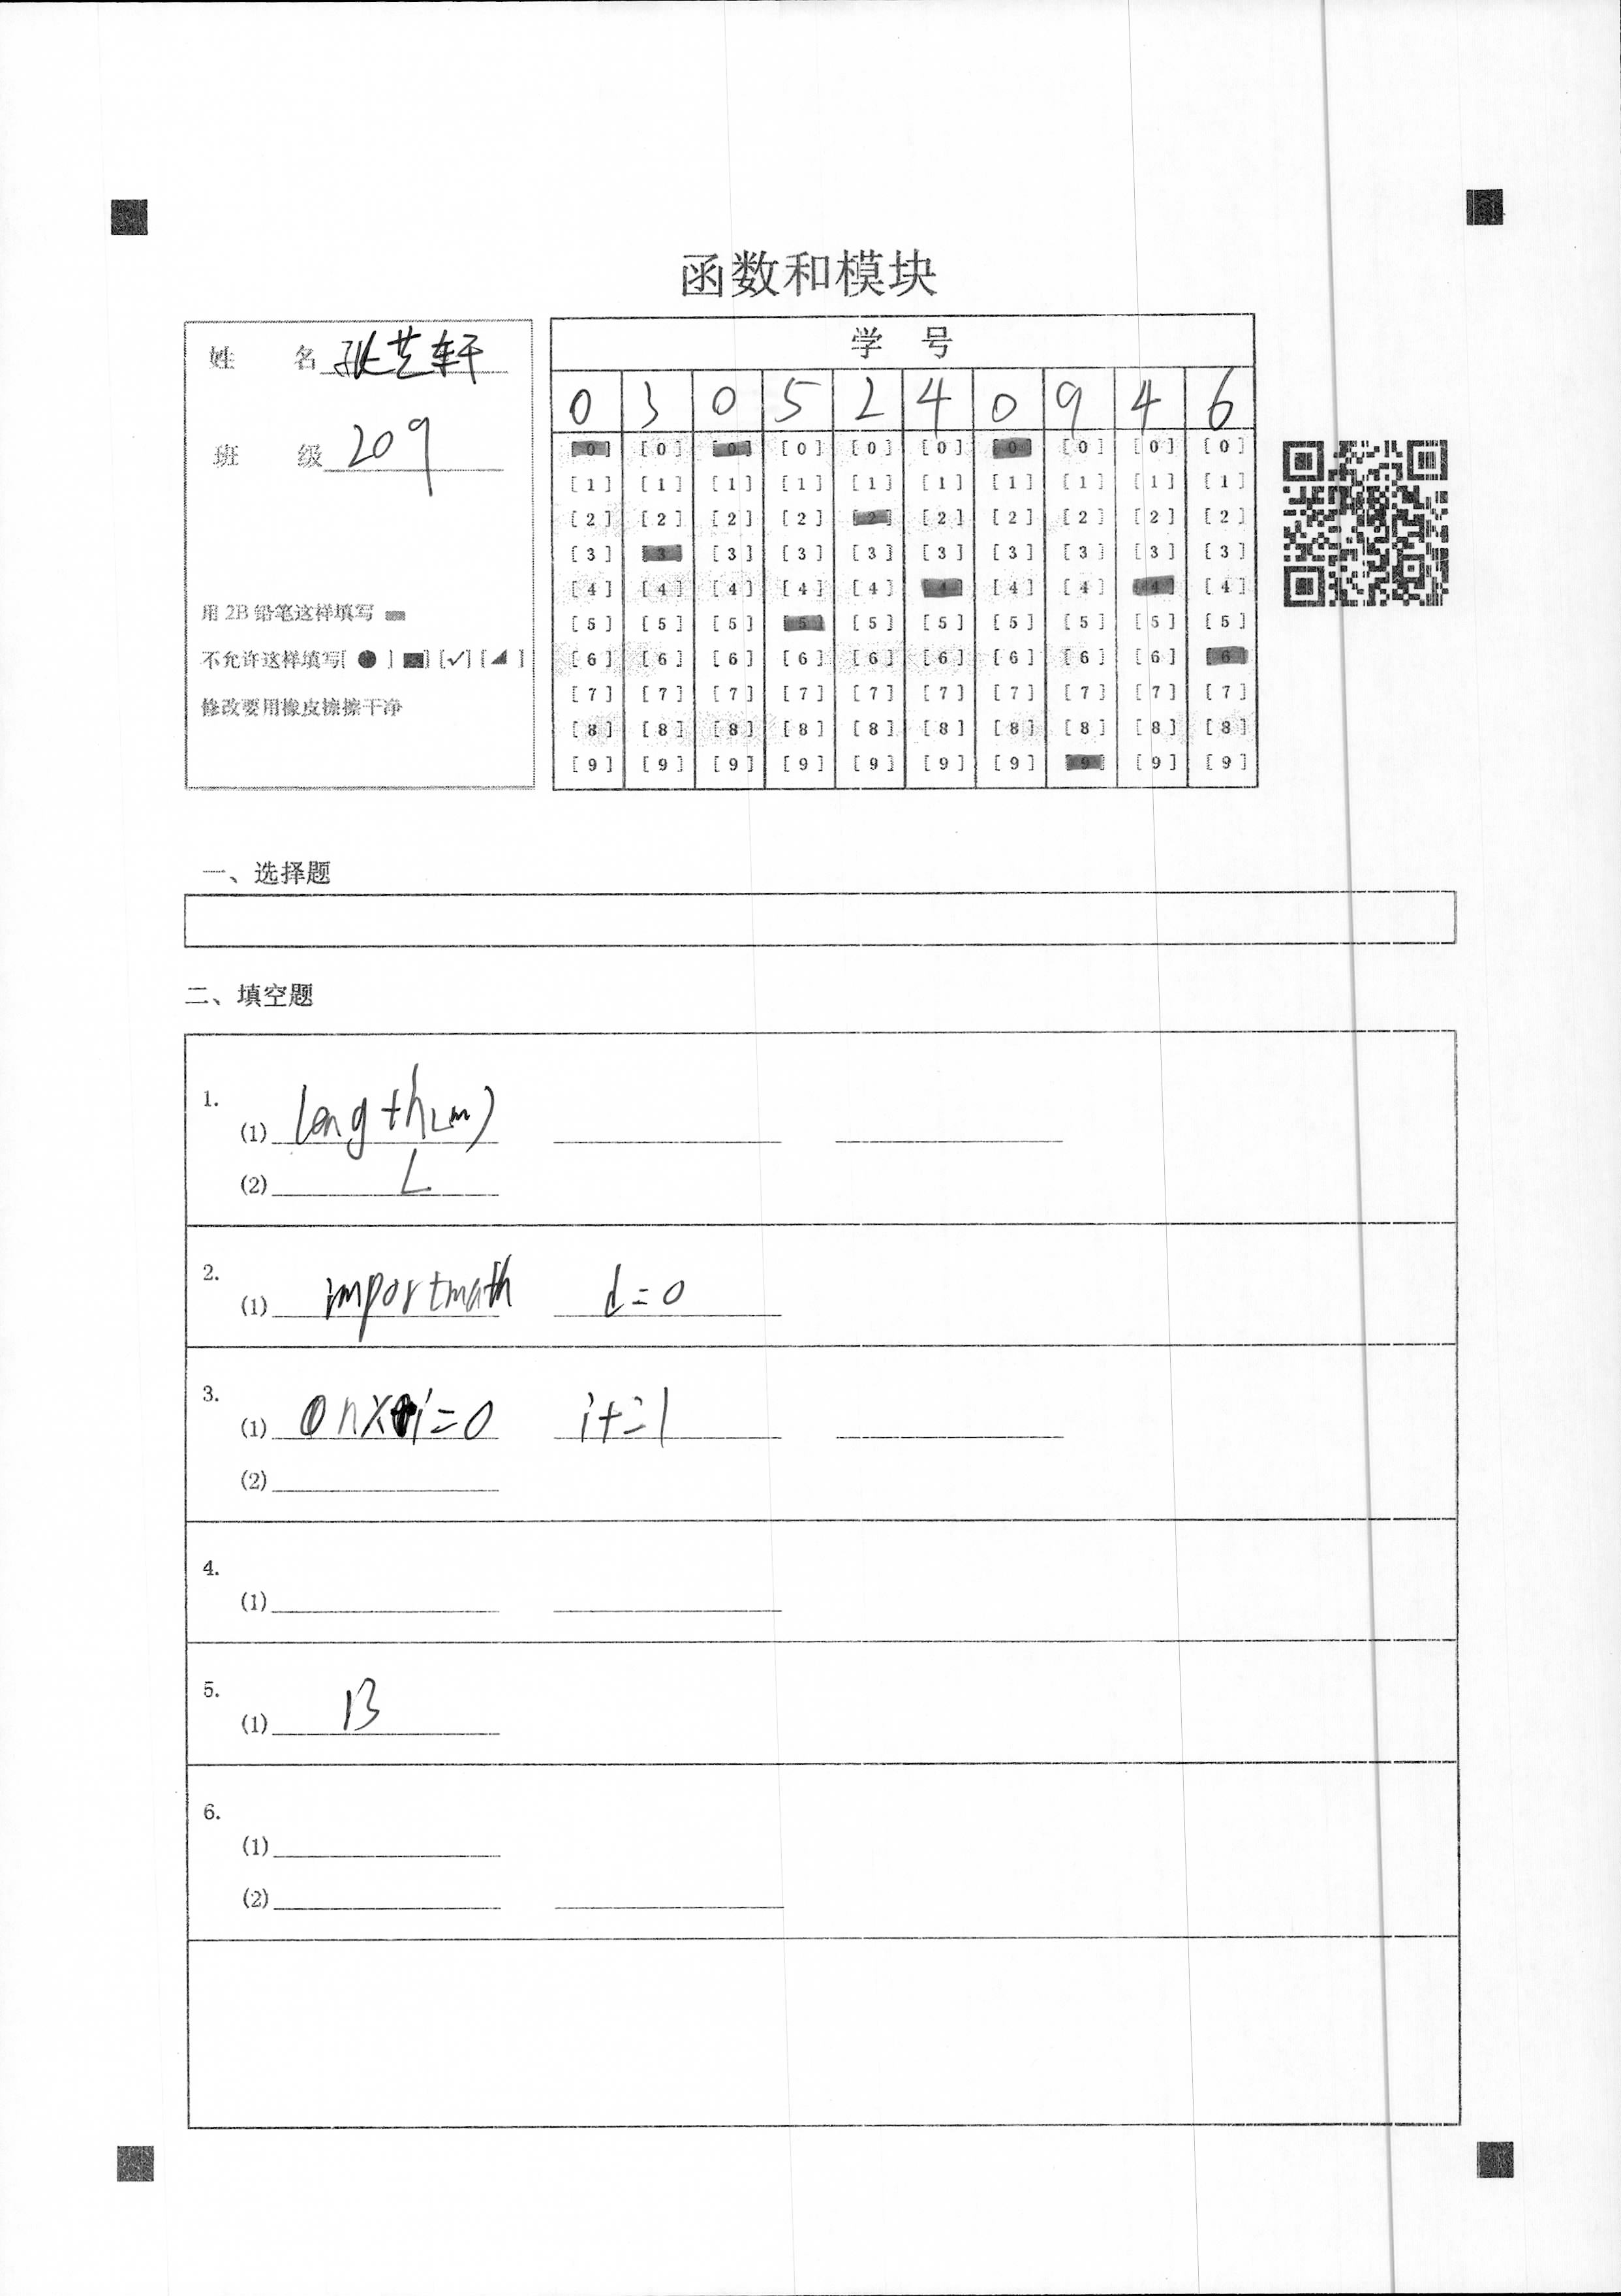 函数和模块
姓 名 张艺轩
班 级 209
用 2B 铅笔这样填写
不允许这样填写[ ● ] [■] [✓] [◢ ]
修改要用橡皮擦擦干净
学 号
0 3 0 5 2 4 0 9 4 6
[0] [0] [0] [0] [0] [0] [0] [0] [0] [0]
[1] [1] [1] [1] [1] [1] [1] [1] [1] [1]
[2] [2] [2] [2] [2] [2] [2] [2] [2] [2]
[3] [3] [3] [3] [3] [3] [3] [3] [3] [3]
[4] [4] [4] [4] [4] [4] [4] [4] [4] [4]
[5] [5] [5] [5] [5] [5] [5] [5] [5] [5]
[6] [6] [6] [6] [6] [6] [6] [6] [6] [6]
[7] [7] [7] [7] [7] [7] [7] [7] [7] [7]
[8] [8] [8] [8] [8] [8] [8] [8] [8] [8]
[9] [9] [9] [9] [9] [9] [9] [9] [9] [9]
一、选择题
二、填空题
1.
(1) length(m)
(2) L
2.
(1) importmath d=0
3.
(1) i=0 i+=1
(2)
4.
(1)
5.
(1) B
6.
(1)
(2)